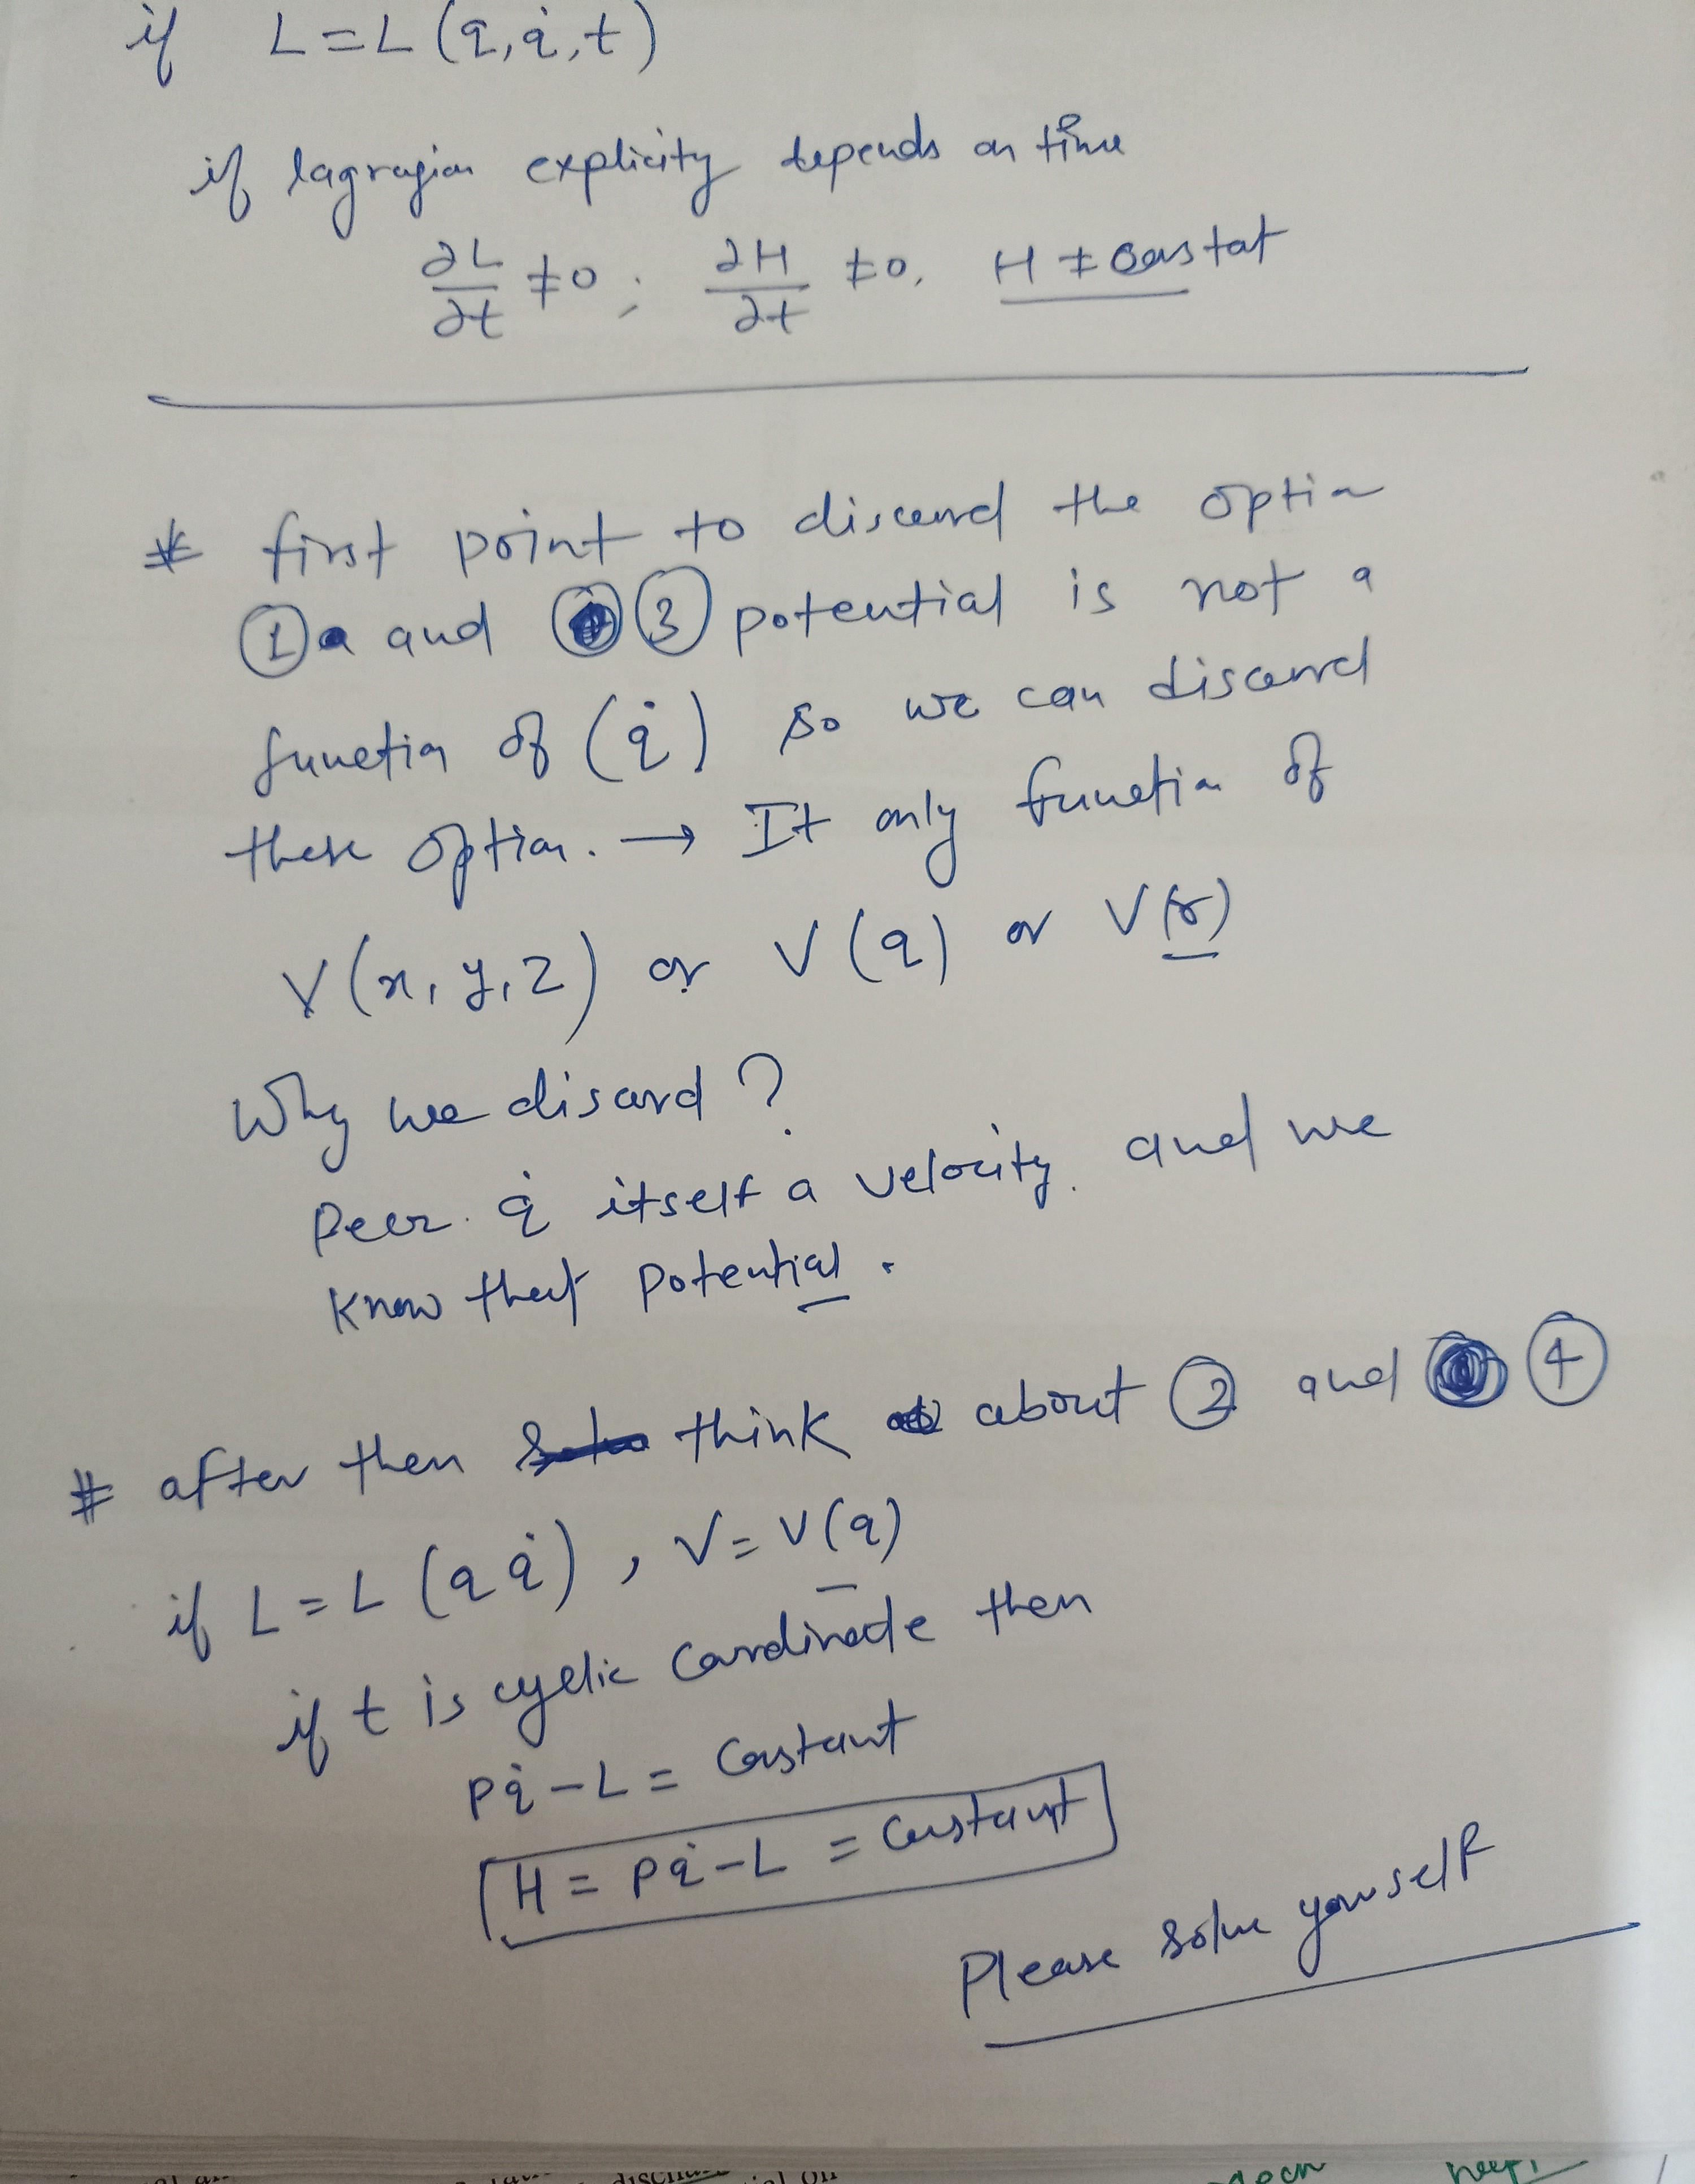 if L=L(q,q̇,t)
if lagragian explicity depends on time
∂L/∂t ≠0 ; ∂H/∂t ≠0, H ≠ constat
* first point to discard the option
① and ③ potential is not a
function of (q̇) so we can discard
these option. → It only function of
V(x,y,z) or V(q) or V(r)
Why we discard?
q̇ itself a velocity. and we
know that potential.
# after then think about ② and ④
if L=L(q q̇), V=V(q)
if t is cyclic cordinate then
pq̇-L= Constant
H = pq̇-L = Constant
Please solve yourself